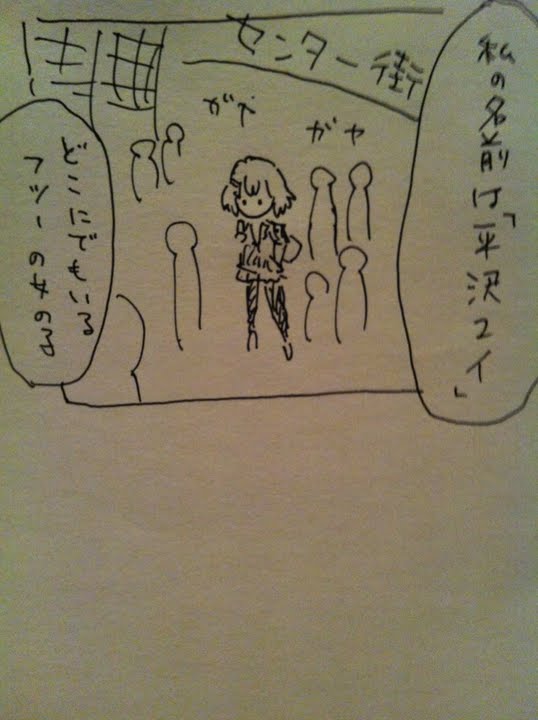 私の名前は「平沢ユイ」
センター街
ガヤ
ガヤ
どこにでもいる
フツーの女の子